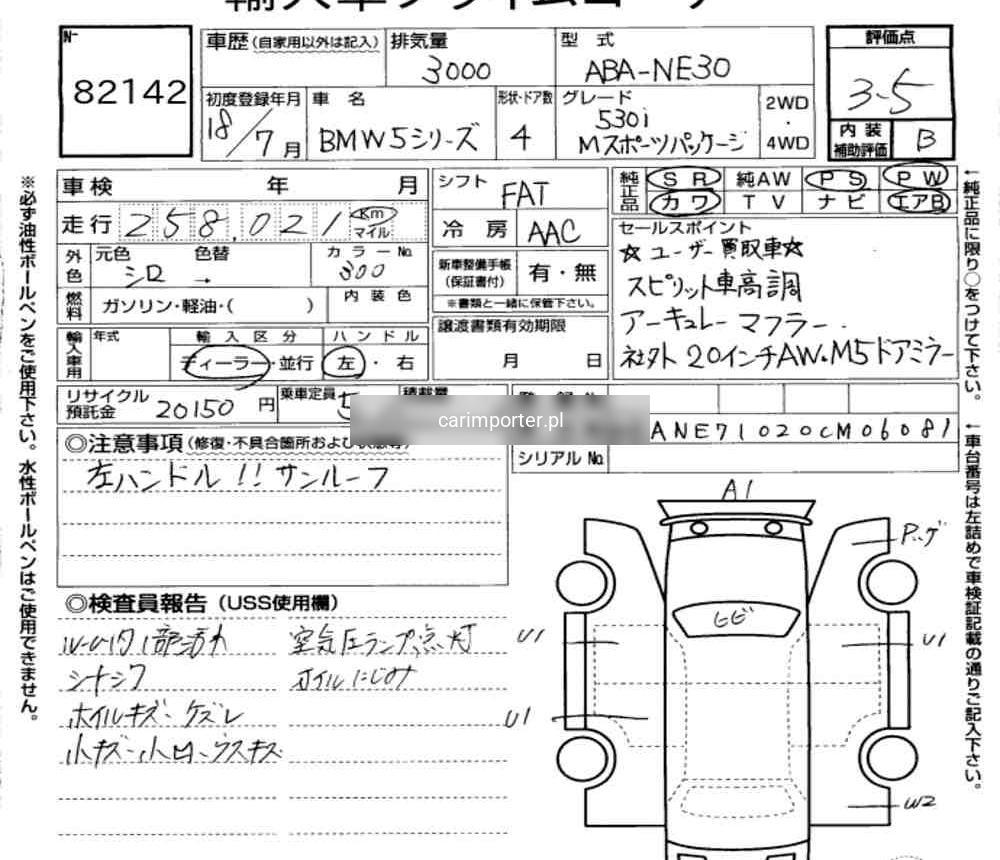 輸入車プライムコーナー
No.
82142
車歴(自家用以外は記入)
排気量
3000
型 式
ABA-NE30
評価点
3.5
初度登録年月
18/7月
車 名
BMW5シリーズ
形状・ドア数
4
グレード
530i
Mスポーツパッケージ
2WD
・
4WD
内 装
補助評価
B
車検 年 月
シフト
FAT
純正品
SR 純AW PS PW
カワ TV ナビ エアB
走行 258,021 Km
マイル
冷 房
AAC
セールスポイント
☆ユーザー買取車☆
スピリット車高調
アーキュレーマフラー
社外20インチAW・M5ドアミラー
外色
元色 色替
シロ →
カラーNo.
300
新車整備手帳
(保証書付)
有・無
※書類と一緒に保管下さい。
燃料
ガソリン・軽油・( )
内 装 色
輸入車用
年式
輸 入 区 分
ディーラー・並行
ハ ン ド ル
左・右
譲渡書類有効期限
月 日
リサイクル
預託金
20150 円
乗車定員
5
積載量
carimporter.pl
ANE71020CM06081
シリアルNo.
◎注意事項(修復・不具合箇所および状態等)
左ハンドル!!サンルーフ
◎検査員報告(USS使用欄)
シートシワ
ホイルキズ・ケズレ
空気圧ランプ点灯
オイルにじみ
A1
ヒビ
U1
U1
U1
W2
※必ず油性ボールペンをご使用下さい。水性ボールペンはご使用できません。
↑純正品に限り○をつけて下さい。
↑車台番号は左詰めで車検証記載の通りご記入下さい。